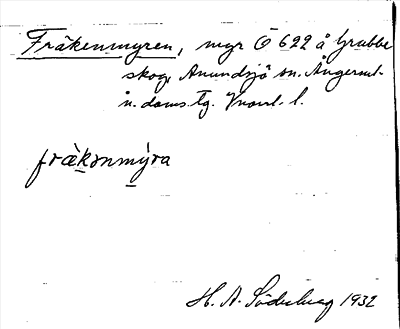 Fräkenmyren, myr Ö 622 å Grubbe
skog, Anundsjö sn. Ångerml.
n. doms. tg. Vnorrl. l.
fräkənmýra
H. A. Söderberg 1932